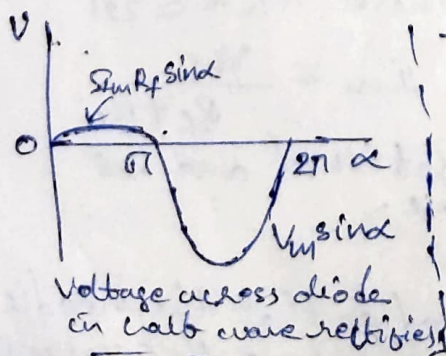 V
ImRf sinα
0
π 2π α
Vm sinα
Voltage across diode
in half wave rectifier